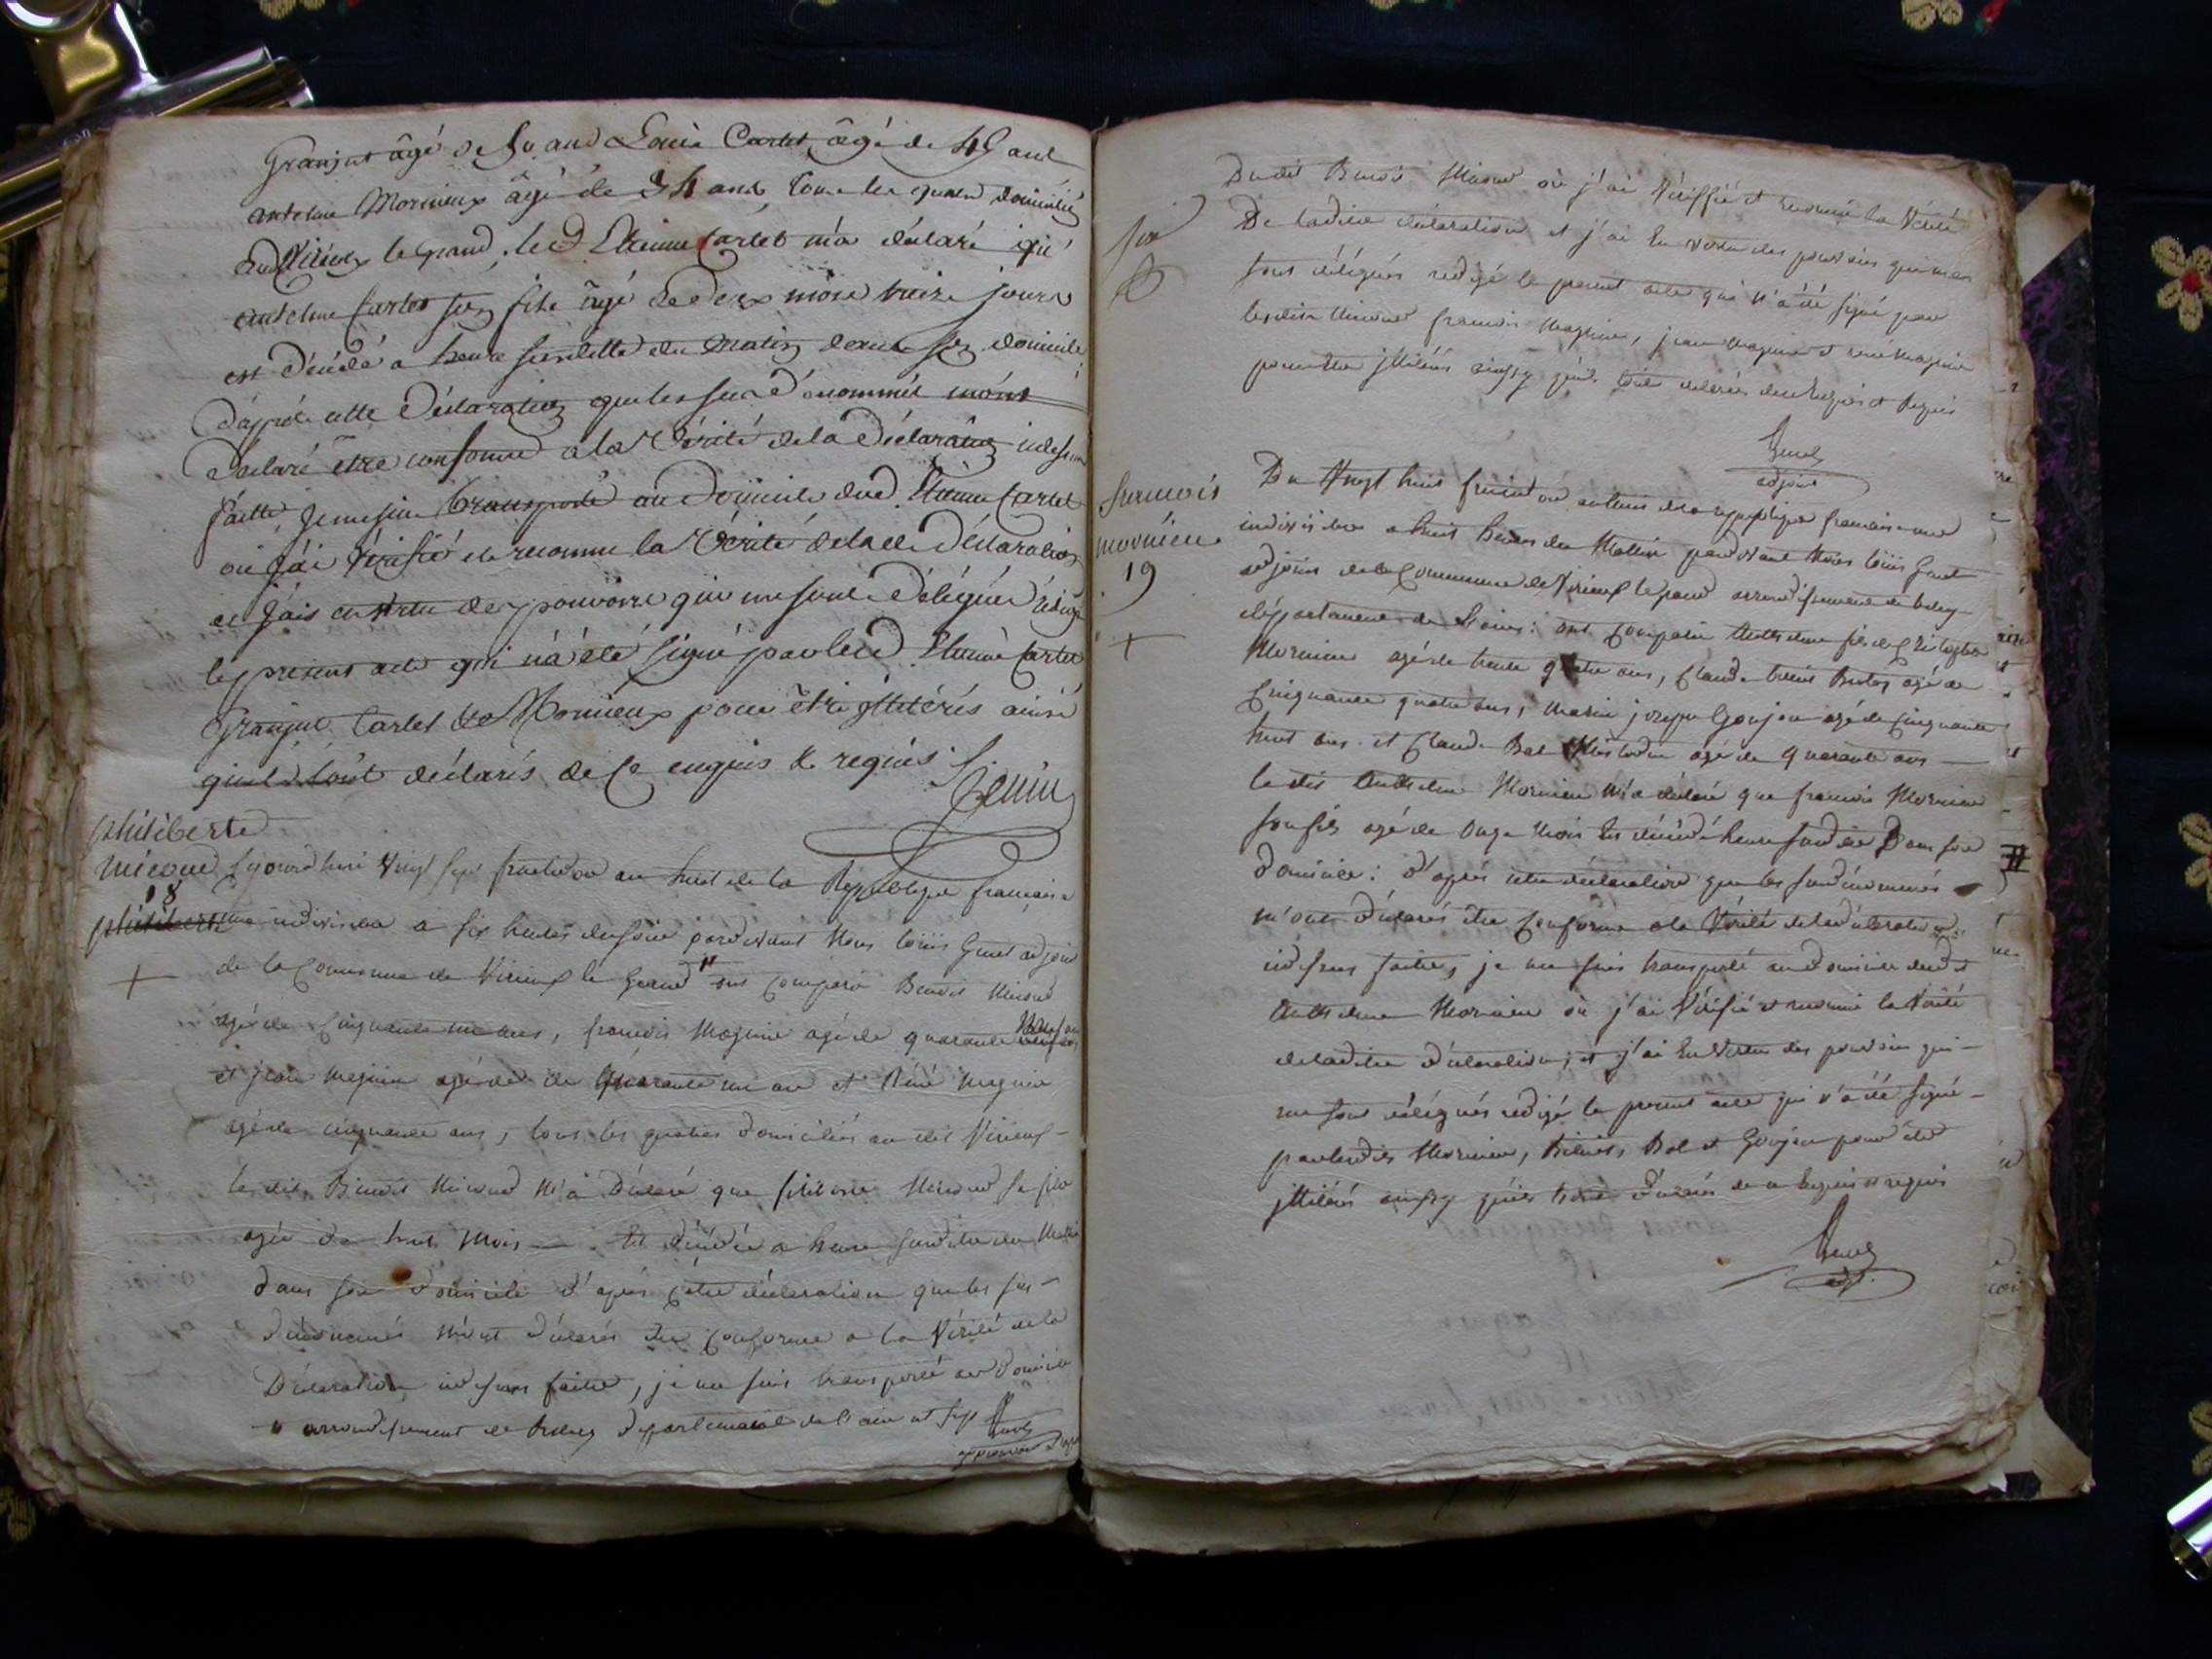 Granjut âgé de 50 ans Louis Cartet âgé de 45 ans
antelme Mornieux âgé de 34 ans, tous les quatre domiciliés
audit Virieux le grand, led. Etienne Cartet m'a déclaré que
antelme Cartet son fils âgé de deux mois treize jours
est décédé a heure susditte du matin dans son domicile,
d'après cette Déclaration que les sus dénommés m'ont
déclaré être conforme a la Vérité de la Déclaration
faitte, Je me suis transporté au Domicile dud. Etienne Cartet
ou J'ai Vérifié et reconnu la Vérité de lad. Déclaration
et J'ais en vertu des pouvoirs qui me sont Délégués rédigé
le present acte qui n'a été signé par led. Etienne Cartet
Granjut Cartet & Mornieux pour être illitérés ainsi
qu'ils l'ont déclarés de ce enquis & requis.
philiberte
micoud
18
Ajourd'huit vingt sept fructidor an huit de la Republique francaise
philiberte une indivisible a six heures du soir pardevant Nous Louis Genet adjoint
de la Commune de Virieux le Grand " ont comparu Benoit Micoud
agé de cinquante un ans, francois Magnin agé de quarante
et jean Magnin agé de quarante un ans et Réné Magnin
agé de cinquante ans, tous les quatres domiciliés au dit Virieux
le dit Benoit Micoud m'a Déclaré que filiberte Micoud sa fille
agée de huit Mois — est décédée a heure susditte du Matin
dans son domicile d'après cette déclaration que les sus-
dénommés m'ont déclarés etre conforme a la Vérité de la
Déclaration cidessus faitte, je me suis transporté au domicile
" arrondissement de Belley département de l'ain
Dudit Benoit Micoud où j'ai Vériffié et reconnu la Vérité
De ladite déclaration et j'ai En vertu des pouvoirs qui me
sont délégués redigé le present acte qui n'a été signé par
lesdits Micoud francois Magnin, jean Magnin et réné Magnin
pour etre illitérés ainsy qu'ils l'ont declarés de ce Enquis et Requis
adjoint
francois
mornieu
19
Du Vingt huit fructidor an huit de la republique francaise une
indivisible a huit heures du Matin pardevant Nous Louis Genet
adjoint de la Commune de Virieux le grand arrondissement de belley
département de L'ain: ont comparu Anthelme fils de
Mornieu agé de trente quatre ans, Claude agé de
Cinquante quatre ans, Marin joseph Goujon agé de cinquante
huit ans. et Claude Bal agé de quarante ans —
le dit Anthelme Mornieu m'a déclaré que francois Mornieu
son fils agé de onze Mois Est décédé heure susdite Dans son
Domicile: d'après cette déclaration que les susdénommés
m'ont déclarés être Conforme a la Vérité de la déclaration
cidessus faitte, je me suis transporté au domicile dudit
Anthelme Mornieu où j'ai Vérifié et reconnu la Vérité
de ladite déclaration, et j'ai En Vertu des pouvoirs qui
me sont délégués redigé le present acte qui n'a été signé
par lesdits Mornieu, Bal et Goujon pour etre
illitérés ainsy qu'ils l'ont déclarés de ce Enquis et requis